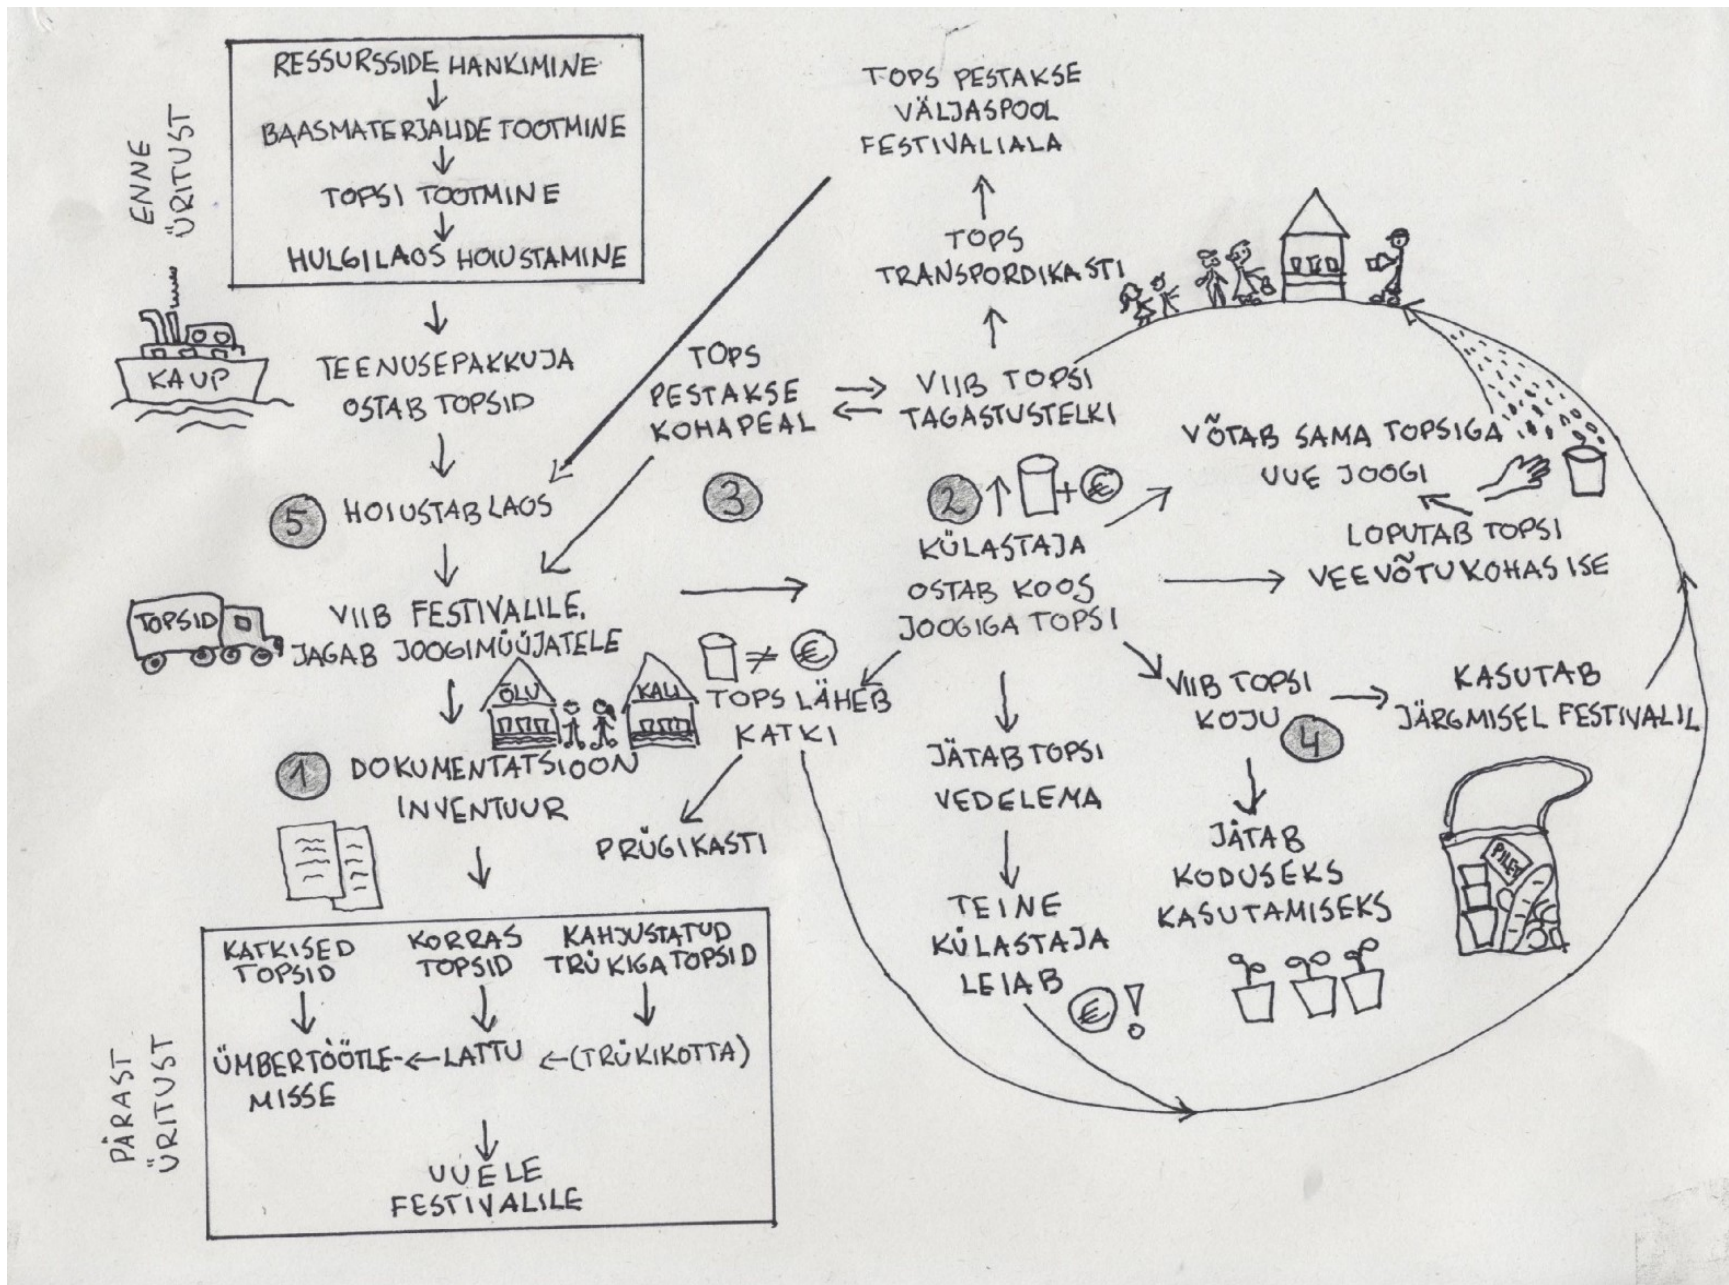 ENNE
ÜRITUST
RESSURSSIDE HANKIMINE
BAASMATERJALIDE TOOTMINE
TOPSI TOOTMINE
HULGILAOS HOIUSTAMINE
KAUP
TEENUSEPAKKUJA
OSTAB TOPSID
5
HOIUSTAB LAOS
TOPSID
VIIB FESTIVALILE,
JAGAB JOOGIMÜÜJATELE
ÕLU
KALI
1
DOKUMENTATSIOON
INVENTUUR
PÄRAST
ÜRITUST
KATKISED
TOPSID
KORRAS
TOPSID
KAHJUSTATUD
TRÜKIGA TOPSID
ÜMBERTÖÖTLE-
MISSE
LATTU
(TRÜKIKOTTA)
UUELE
FESTIVALILE
TOPS PESTAKSE
VÄLJASPOOL
FESTIVALIALA
TOPS
TRANSPORDIKASTI
TOPS
PESTAKSE
KOHAPEAL
3
VIIB TOPSI
TAGASTUSTELKI
2
+ €
KÜLASTAJA
OSTAB KOOS
JOOGIGA TOPSI
VÕTAB SAMA TOPSIGA
UUE JOOGI
LOPUTAB TOPSI
VEEVÕTUKOHAS ISE
≠ €
TOPS LÄHEB
KATKI
PRÜGIKASTI
JÄTAB TOPSI
VEDELEMA
TEINE
KÜLASTAJA
LEIAB
€ !
VIIB TOPSI
KOJU
4
KASUTAB
JÄRGMISEL FESTIVALIL
JÄTAB
KODUSEKS
KASUTAMISEKS
PILET